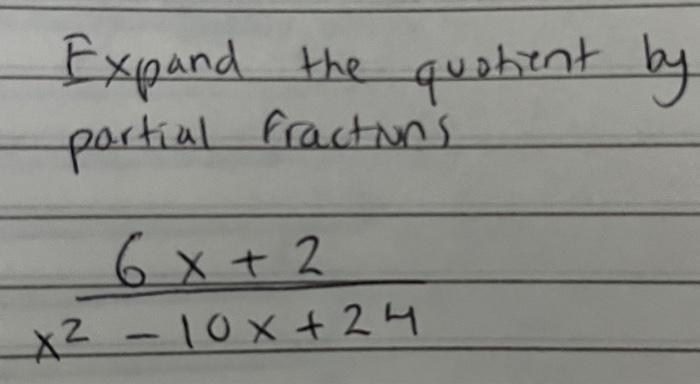 Expand the quotient by
partial fractions
6x + 2
x² - 10x + 24